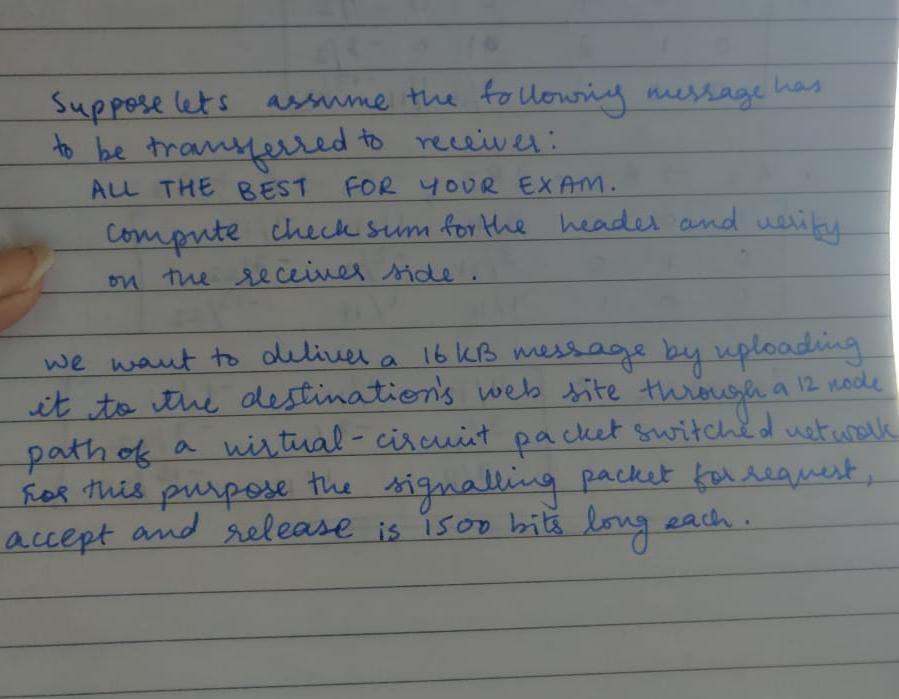 Suppose lets assume the following message has
to be transferred to receiver:
ALL THE BEST FOR YOUR EXAM.
Compute check sum for the header and verify
on the receiver side.
We want to deliver a 16 kB message by uploading
it to the destination's web site through a 12 node
path of a virtual-circuit packet switched network
For this purpose the signalling packet for request,
accept and release is 1500 bits long each.